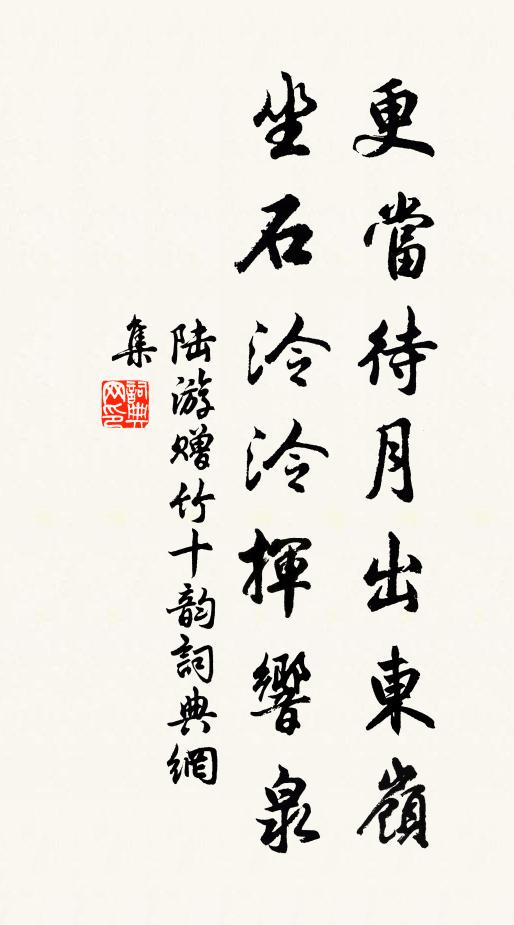 更當待月出東嶺
坐石泠泠揮響泉
陆游赠竹十韵詞典網
集
詞典網印